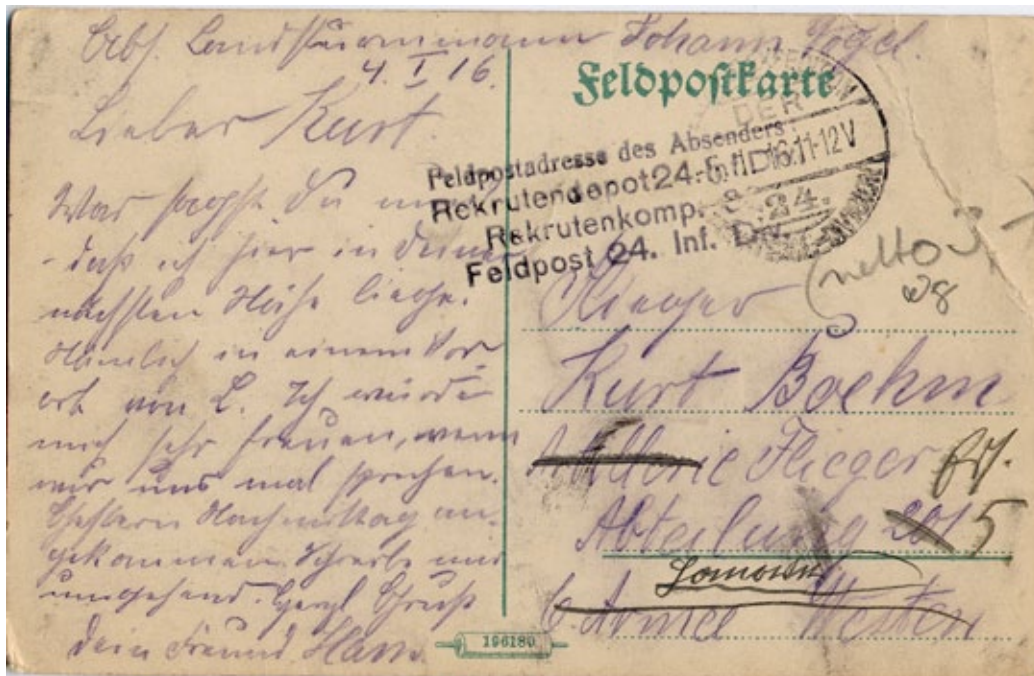 Abs. Landsturmmann Johann Vogel.
4. I 16.
Lieber Kurt.
Was sagst Du nun?
daß ich hier in Deiner
nächsten Nähe liege.
Nämlich in einem Vor
ort von L. Ich würde
mich sehr freuen, wenn
wir uns mal sprechen.
Gestern Nachmittag an-
gekommen. Schreib mir
umgehend. Herzl Gruß
Dein Freund Hans.
Feldpostkarte
Feldpostadresse des Absenders:
Rekrutendepot 24. Inf. D.
Rekrutenkomp.
Feldpost 24. Inf. Div.
DER
16.11-12V
24.
Flieger
Kurt Boehm
Flieger
Abteilung 201 5
6. Armee Westen
196180